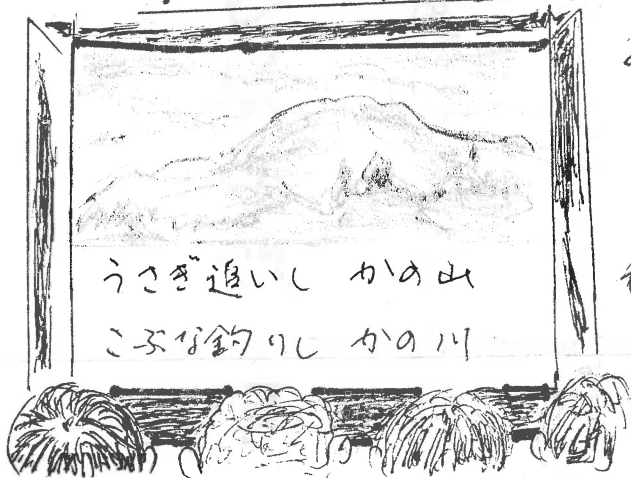 うさぎ追いし かの山
こぶな釣りし かの川